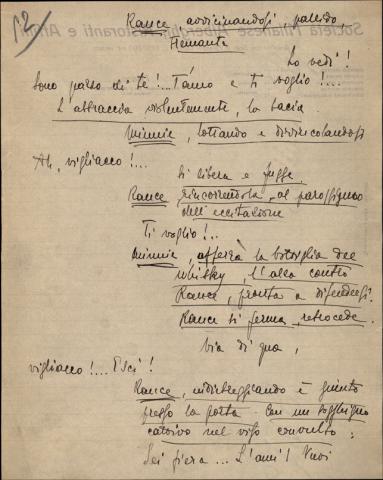 12
Rance avvicinandosi, pallido,
tremante
Lo vedi!
Sono pazzo di te!... T'amo e ti voglio!...
L'abbraccia violentemente, la bacia.
Minnie, lottando e divincolandosi
Ah, vigliacco!...
Si libera e fugge
Rance, rincorrendola, al parossismo
dell'eccitazione
Ti voglio!..
Minnie, afferra la bottiglia del
whisky, l'alza contro
Rance, pronta a difendersi.
Rance si ferma, retrocede.
Via di qua,
vigliacco!... Esci!
Rance, indietreggiando è giunto
presso la porta. Con un sogghigno
cattivo nel viso convulso:
Sei fiera... L'ami! Vuoi